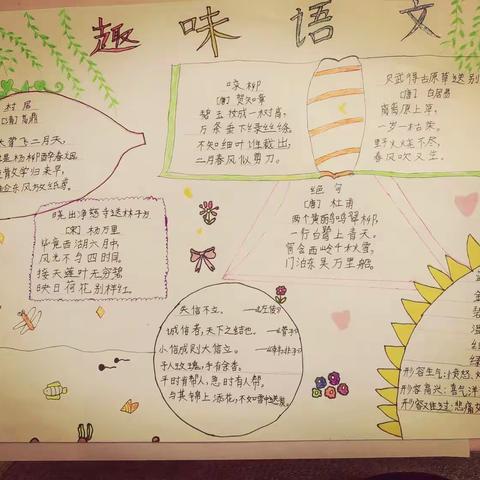 趣味语文
村居
[清]高鼎
长莺飞二月天,
堤杨柳醉春烟
童散学归来早,
趁东风放纸鸢。
咏柳
[唐]贺知章
碧玉妆成一树高,
万条垂下绿丝绦。
不知细叶谁裁出,
二月春风似剪刀。
赋得古原草送别
[唐]白居易
离离原上草,
一岁一枯荣。
野火烧不尽,
春风吹又生。
绝句
[唐]杜甫
两个黄鹂鸣翠柳,
一行白鹭上青天。
窗含西岭千秋雪,
门泊东吴万里船。
晓出净慈寺送林子方
[宋]杨万里
毕竟西湖六月中,
风光不与四时同。
接天莲叶无穷碧
映日荷花别样红。
失信不立。——《左传》
诚信者,天下之结也。——《管子》
小信成则大信立。——《韩非子》
予人玫瑰,手有余香。
平时有帮人,急时有人帮。
与其锦上添花,不如雪中送炭。
形容生气:愤怒、
形容高兴:喜气洋
形容难过:悲痛